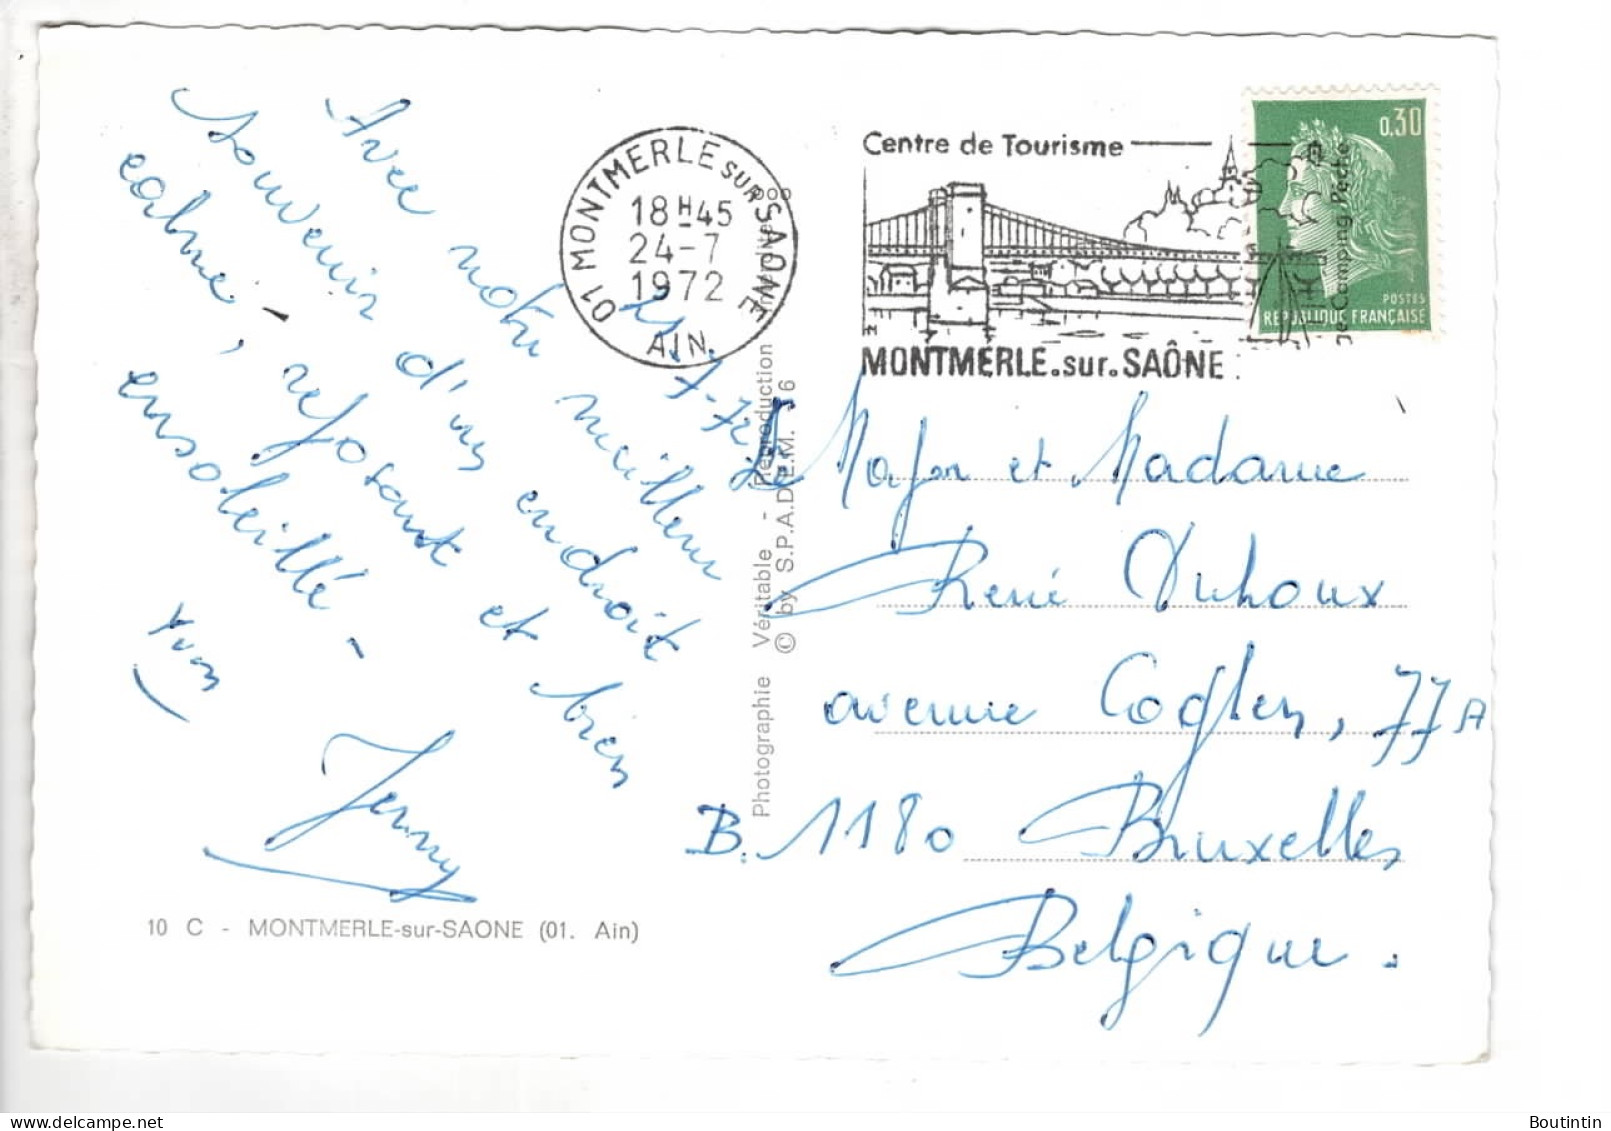 Avec notre meilleur
souvenir d'un endroit
calme, reposant et bien
ensoleillé -
Yvon
Jenny
10 C - MONTMERLE-sur-SAONE (01. Ain)
01 MONTMERLE SUR SAONE
18H45
24-7
1972
AIN
Photographie Véritable - Reproduction
© by S.P.A.D.E.M.
Centre de Tourisme
Camping Pêche
MONTMERLE.sur.SAÔNE
0,30
POSTES
REPUBLIQUE FRANÇAISE
Major et Madame
René Duhoux
avenue Coghen, 77A
B. 1180 Bruxelles
Belgique.
Boutintin